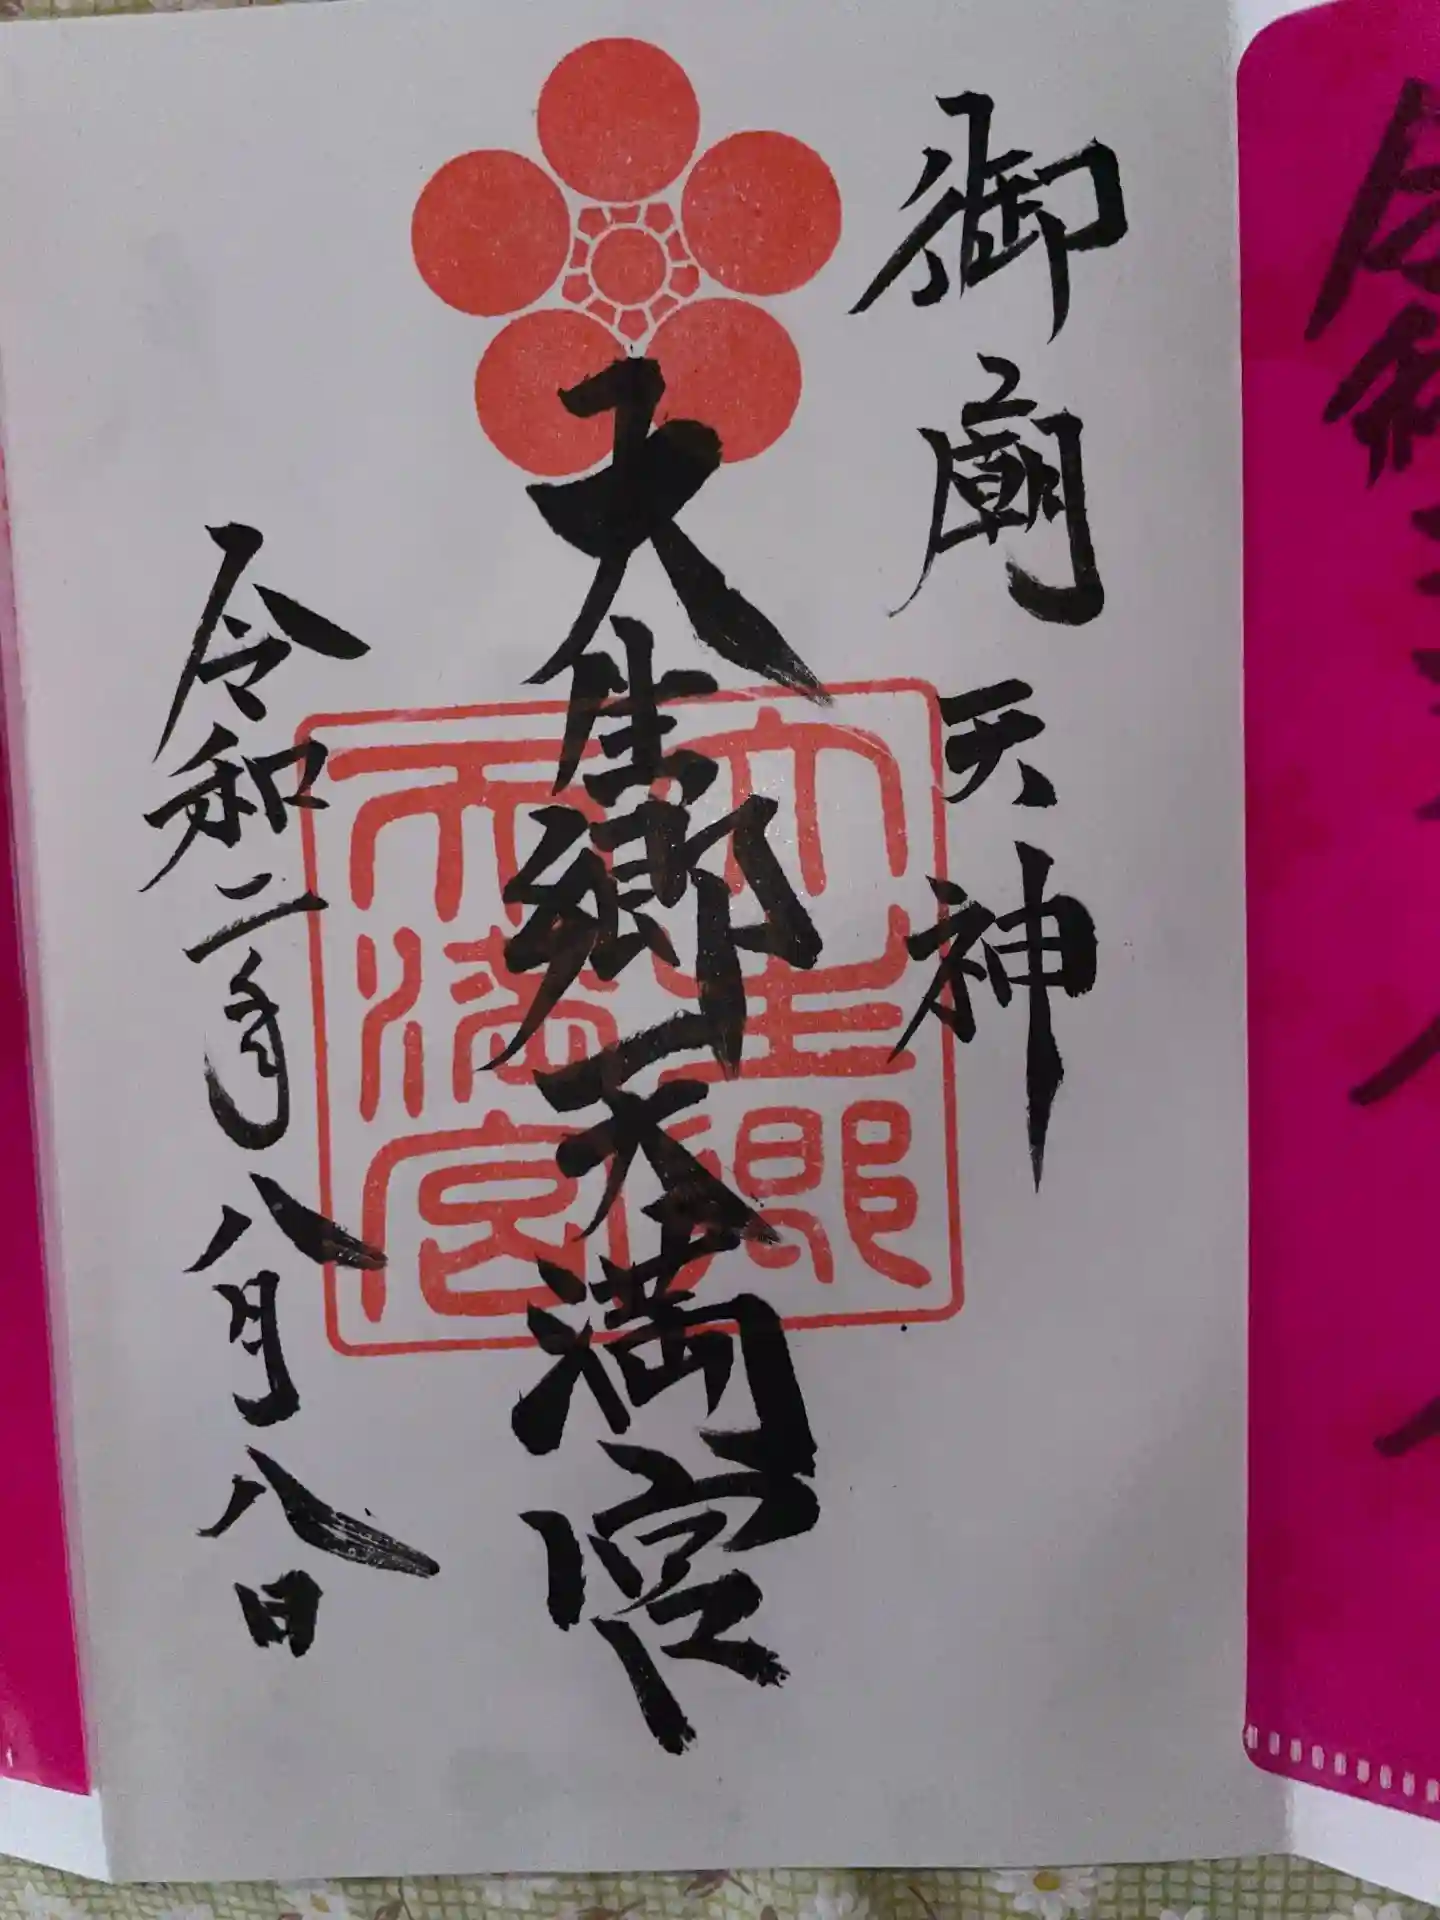 御廟天神
大生郷天満宮
令和二年八月八日
大生郷
天満宮